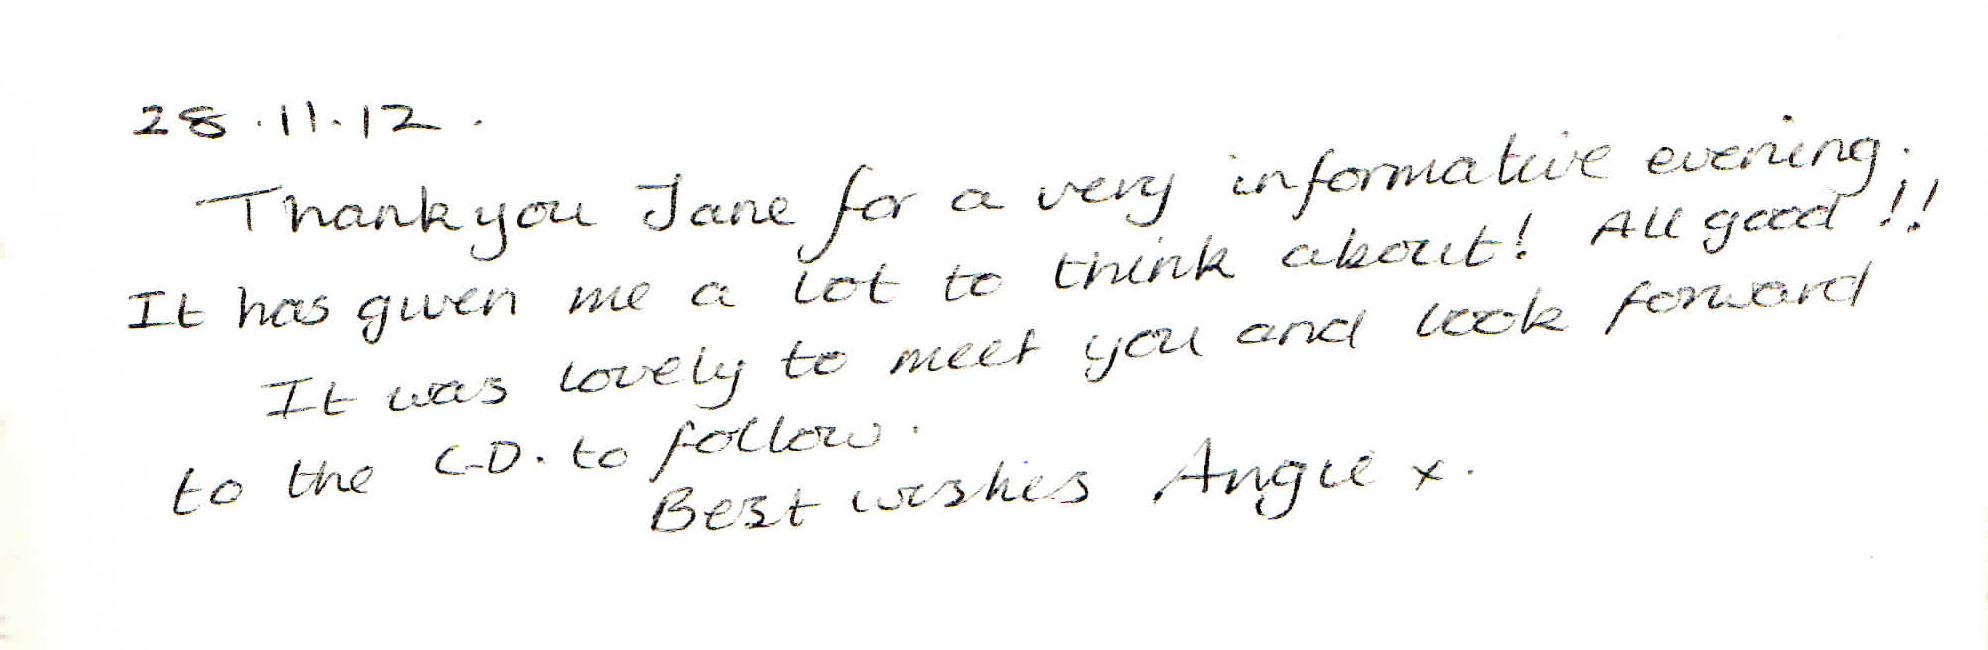 28.11.12.
Thankyou Jane for a very informative evening.
It has given me a lot to think about! All good!!
It was lovely to meet you and look forward
to the C.D. to follow.
Best wishes Angie x.